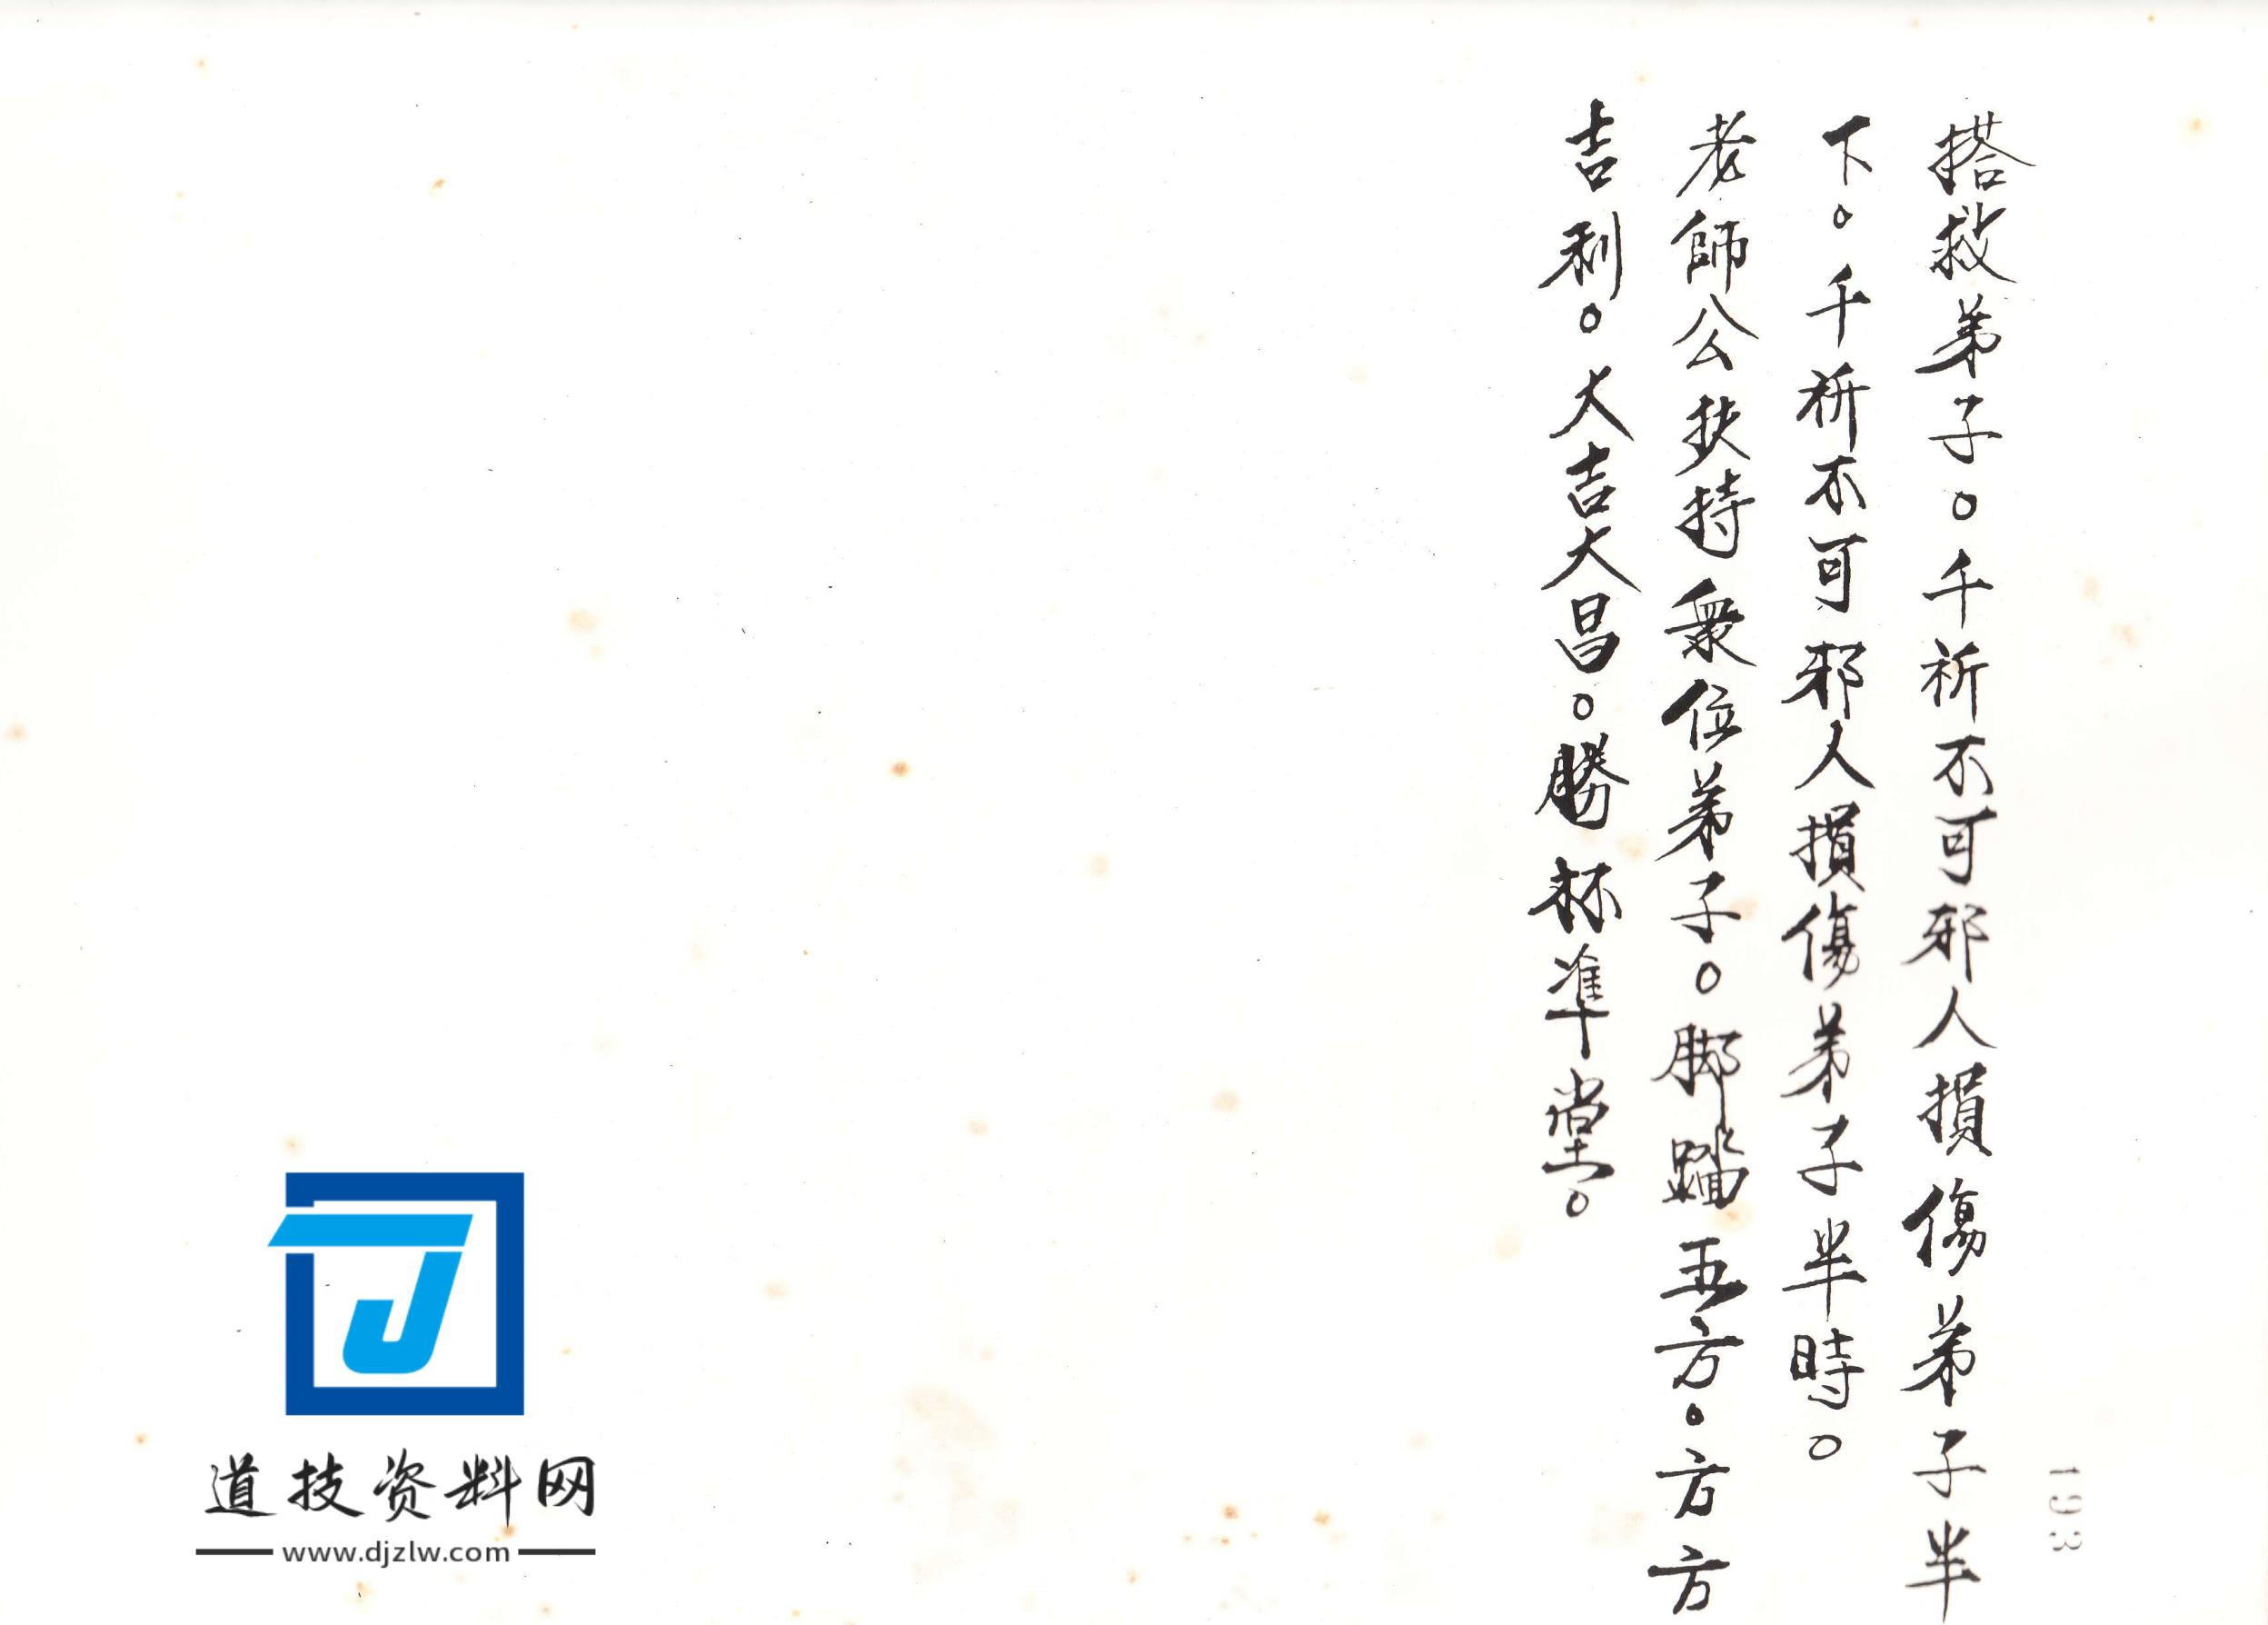 搭救弟子。千祈不可邪人損傷弟子半
下。千祈不可邪人損傷弟子半時。
老師公扶持衆位弟子。脚踏五方。方方
吉利。大吉大昌。勝杯準堂。
193
道技资料网
www.djzlw.com